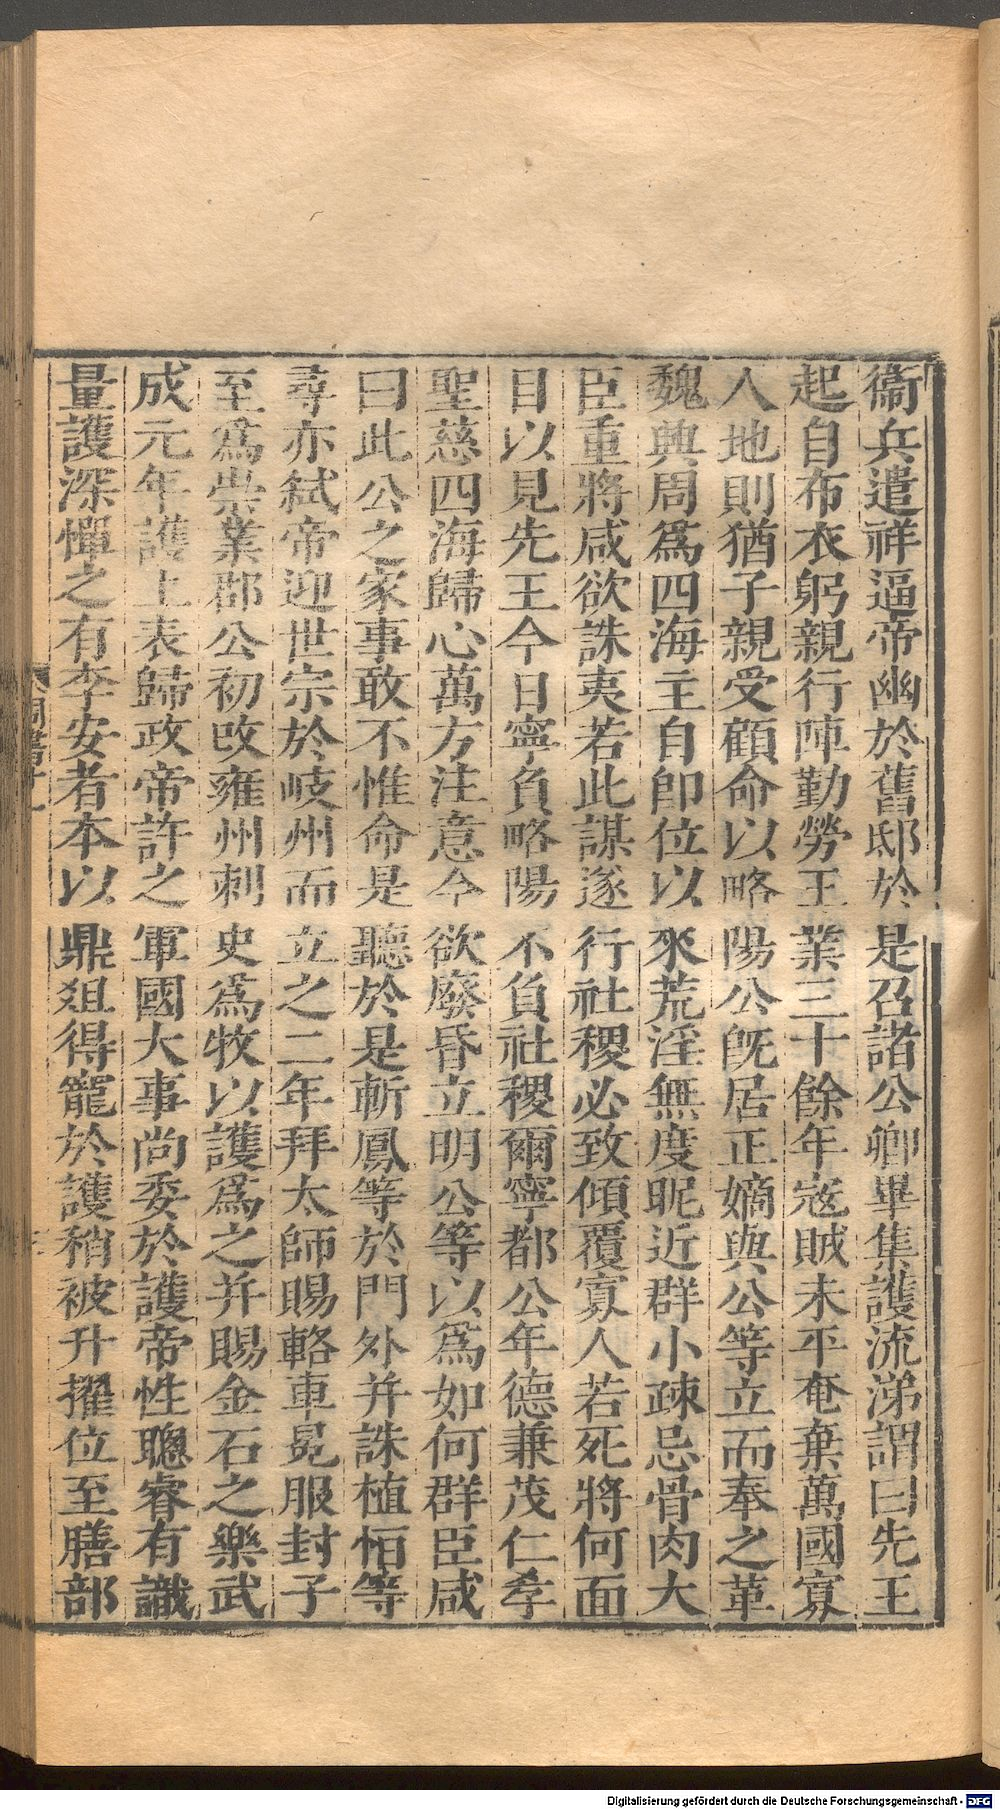 衞兵遣祥逼帝幽於舊邸於是召諸公卿畢集護流涕謂曰先王
起自布衣躬親行陣勤勞王業三十餘年寇賊未平奄棄萬國寡
人地則猶子親受顧命以略陽公旣居正嫡與公等立而奉之革
魏興周爲四海主自卽位以來荒淫無度昵近群小疎忌骨肉大
臣重將咸欲誅夷若此謀遂行社稷必致傾覆寡人若死將何面
目以見先王今日寧負略陽不負社稷爾寧都公年德兼茂仁孝
聖慈四海歸心萬方注意今欲廢昏立明公等以爲如何群臣咸
曰此公之家事敢不惟命是聽於是斬鳳等於門外并誅植恒等
尋亦弑帝迎世宗於岐州而立之二年拜太師賜輅車冕服封子
至爲崇業郡公初改雍州刺史爲牧以護爲之并賜金石之樂武
成元年護上表歸政帝許之軍國大事尚委於護帝性聰睿有識
量護深憚之有李安者本以鼎俎得寵於護稍被升擢位至膳部
Digitalisierung gefördert durch die Deutsche Forschungsgemeinschaft - DFG